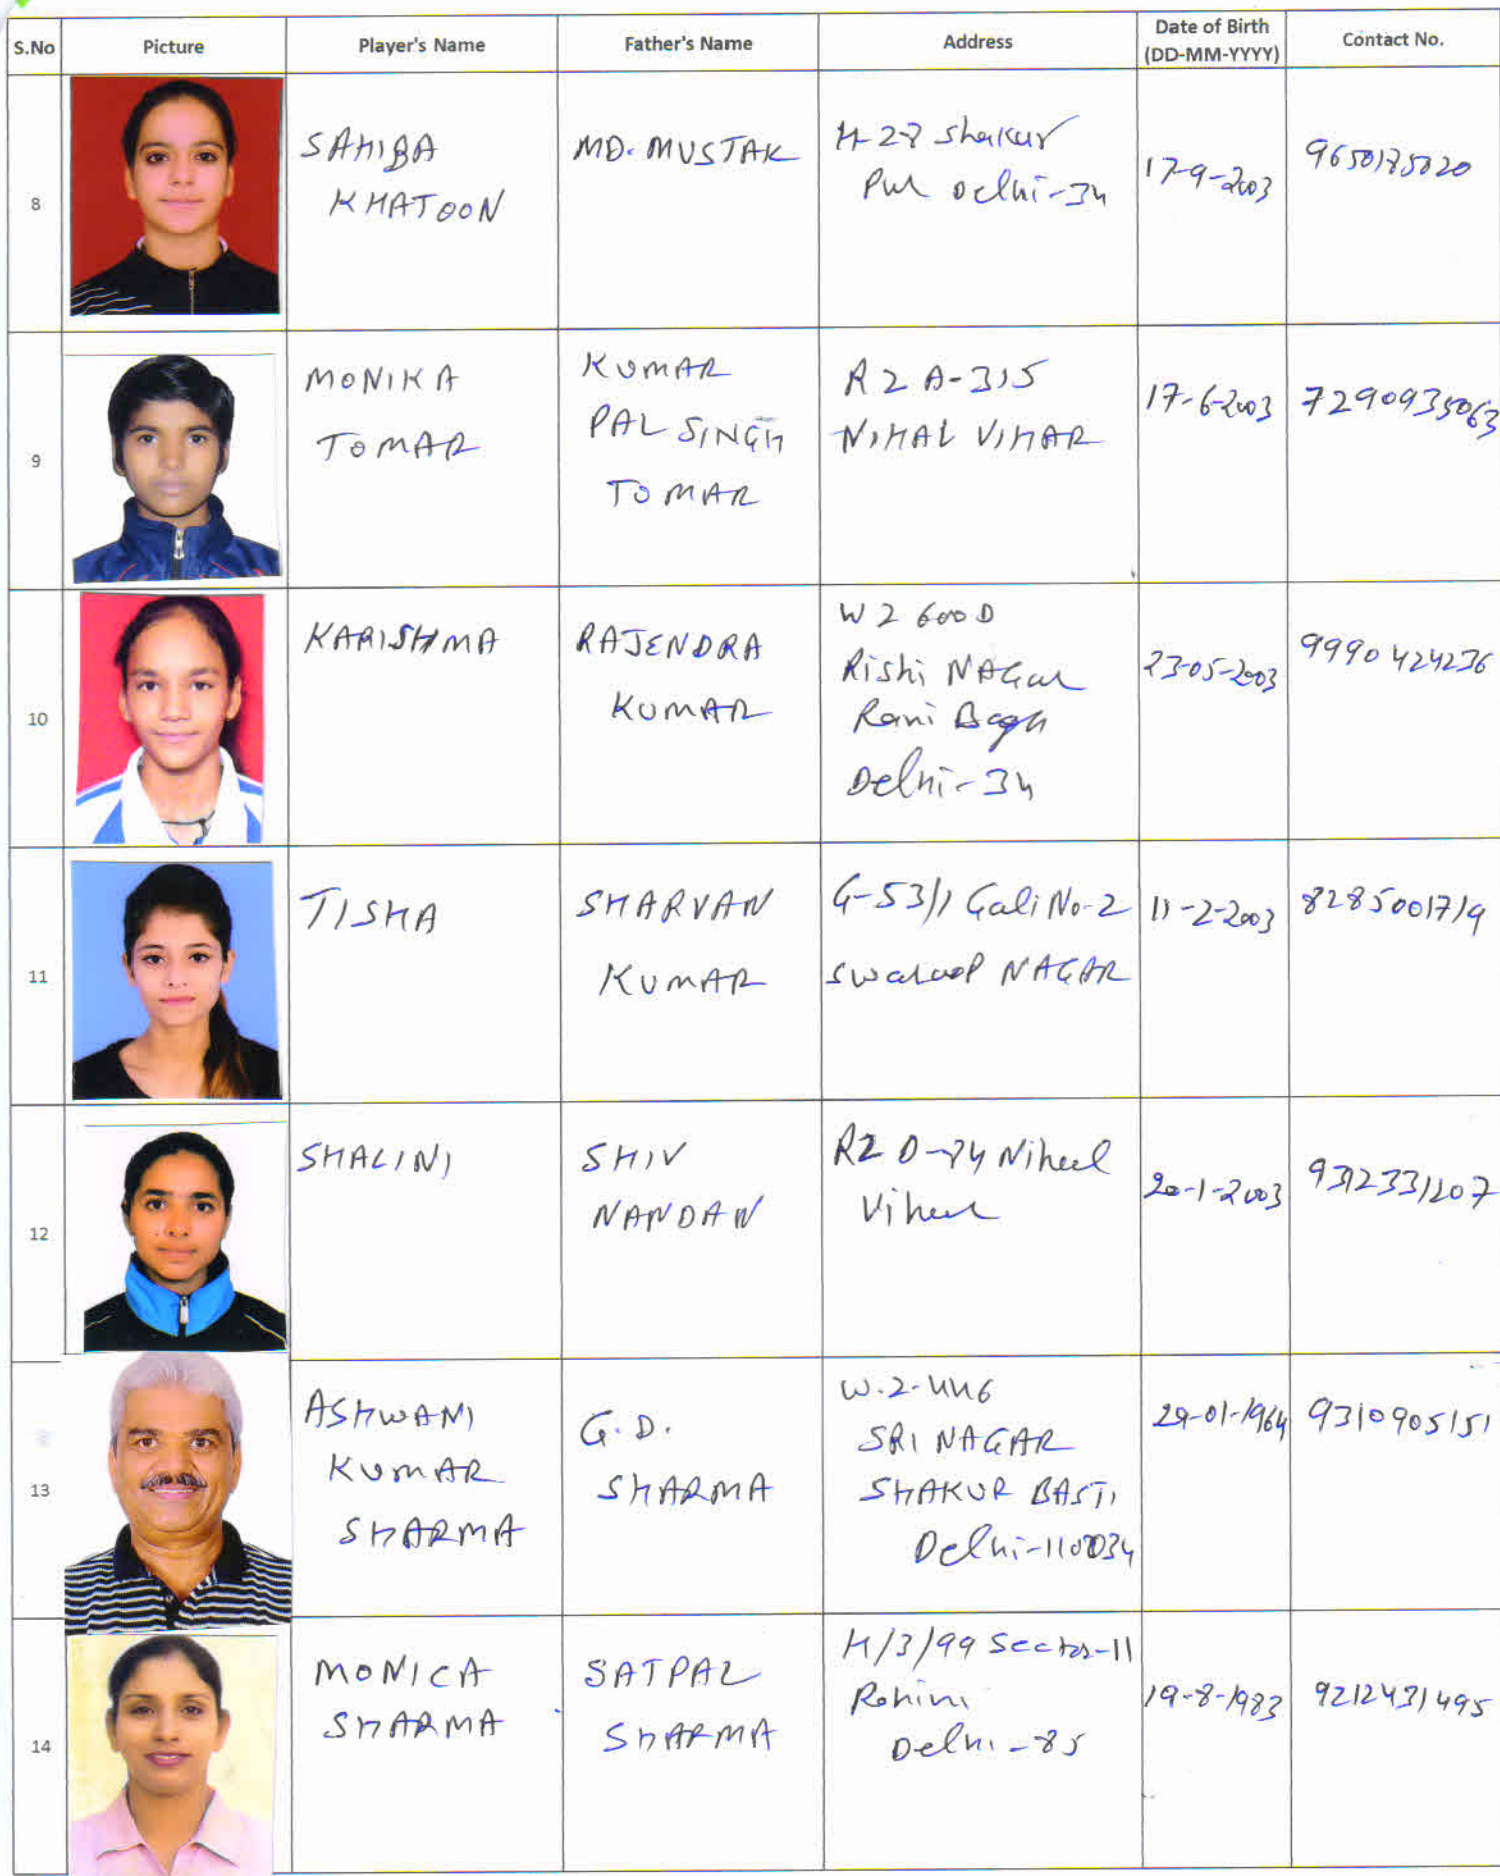 S.No Picture Player's Name Father's Name Address Date of Birth (DD-MM-YYYY) Contact No.
8
SAHIBA
KHATOON
MD. MUSTAK
H-28 Shakur
Pur Delhi-34
17-9-2003
9650185020
9
MONIKA
TOMAR
KUMAR
PAL SINGH
TOMAR
R 2 A-315
NIHAL VIHAR
17-6-2003
7290935063
10
KARISHMA
RAJENDRA
KUMAR
W 2 600 D
Rishi NAGar
Rani Bagh
Delhi-34
23-05-2003
9990424236
11
TISHA
SHARVAN
KUMAR
G-53/1 Gali No-2
Swaroop NAGAR
11-2-2003
8285001719
12
SHALINI
SHIV
NANDAN
RZ D-84 Nihal
Vihar
20-1-2003
9312331207
13
ASHWANI
KUMAR
SHARMA
G.D.
SHARMA
W-2-446
SRI NAGAR
SHAKUR BASTI
Delhi-110034
29-01-1964
9310905151
14
MONICA
SHARMA
SATPAL
SHARMA
H/3/99 Sector-11
Rohini
Delhi-85
19-8-1983
9212431495